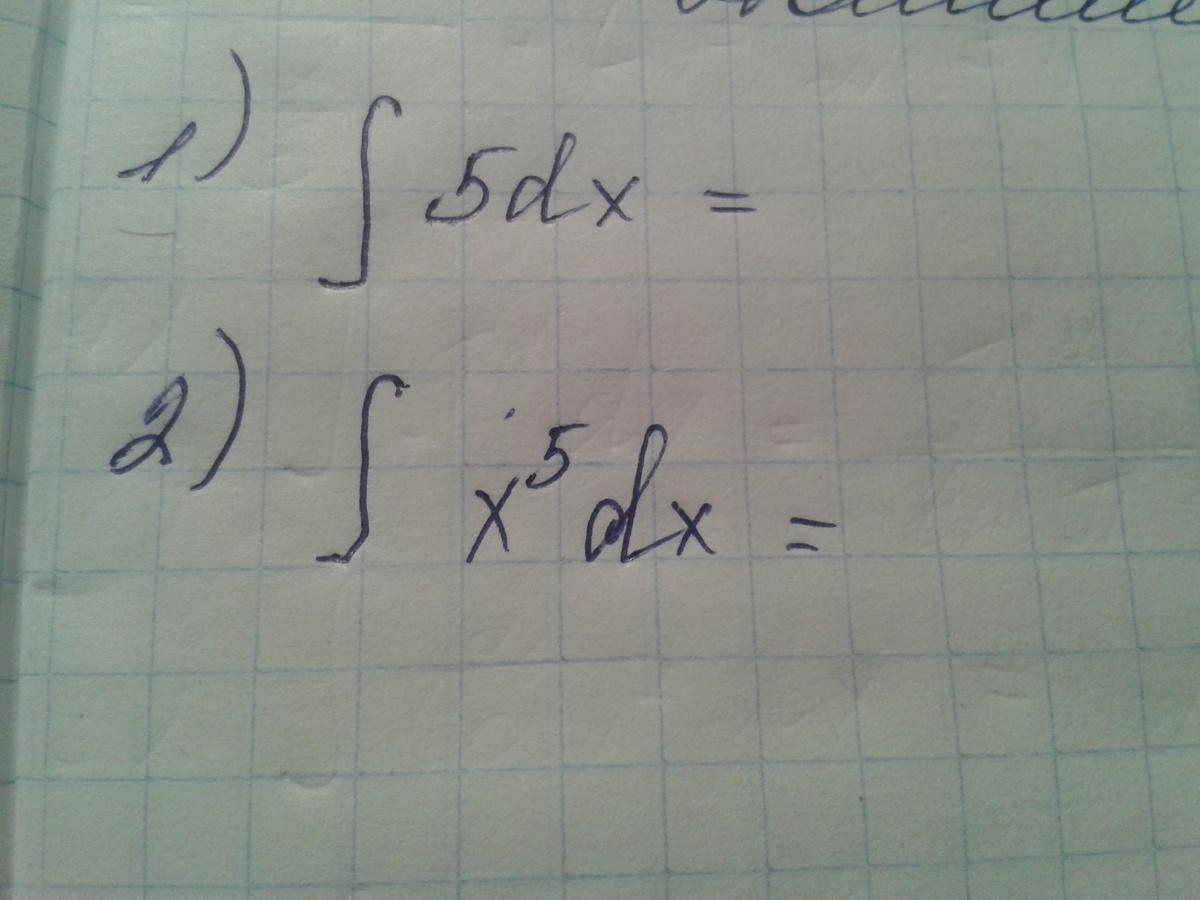 1) ∫ 5dx =
2) ∫ x⁵ dx =